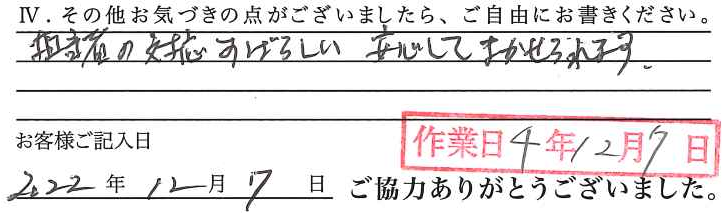 Ⅳ．その他お気づきの点がございましたら、ご自由にお書きください。
担当者の対応すばらしい 安心してまかせられます。
お客様ご記入日
作業日4年12月7日
2022年12月7日 ご協力ありがとうございました。